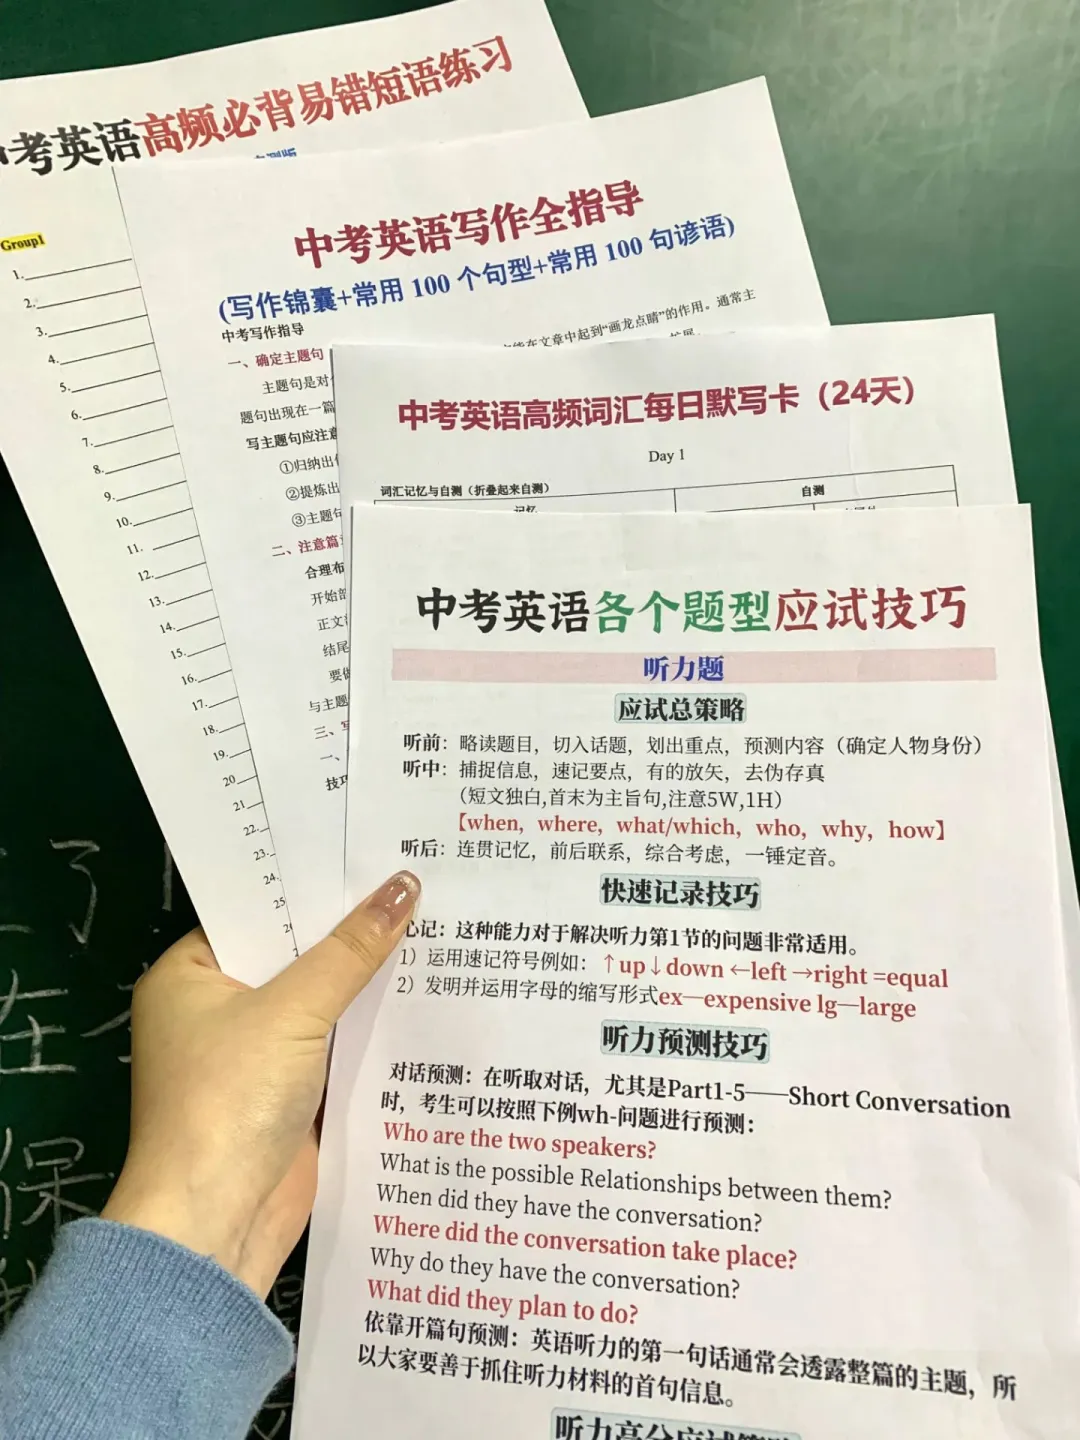 中考英语高频必背易错短语练习
Group1
1.
2.
3.
4.
5.
6.
7.
8.
9.
10.
11.
12.
13.
14.
15.
16.
17.
18.
19.
20
21
22.
23.
24.
25
中考英语写作全指导
(写作锦囊+常用 100 个句型+常用 100 句谚语)
中考写作指导
一、确定主题句
主题句是对
能在文章中起到“画龙点睛”的作用。通常主
题句出现在一篇
写主题句应注意
①归纳出
②提炼出
③主题句
二、注意篇
合理布
开始部
正文
结尾
要做
与主题
三、写
一、
技巧
中考英语高频词汇每日默写卡（24天）
Day 1
词汇记忆与自测（折叠起来自测）
自测
记忆
中考英语各个题型应试技巧
听力题
应试总策略
听前：略读题目，切入话题，划出重点，预测内容（确定人物身份）
听中：捕捉信息，速记要点，有的放矢，去伪存真
（短文独白,首末为主旨句,注意5W,1H）
【when, where, what/which, who, why, how】
听后：连贯记忆，前后联系，综合考虑，一锤定音。
快速记录技巧
心记：这种能力对于解决听力第1节的问题非常适用。
1）运用速记符号例如：↑up↓down ←left →right =equal
2）发明并运用字母的缩写形式ex—expensive lg—large
听力预测技巧
对话预测：在听取对话，尤其是Part1-5——Short Conversation
时，考生可以按照下例wh-问题进行预测：
Who are the two speakers?
What is the possible Relationships between them?
When did they have the conversation?
Where did the conversation take place?
Why do they have the conversation?
What did they plan to do?
依靠开篇句预测：英语听力的第一句话通常会透露整篇的主题，所
以大家要善于抓住听力材料的首句信息。
听力高分应试策略
了!
在
保